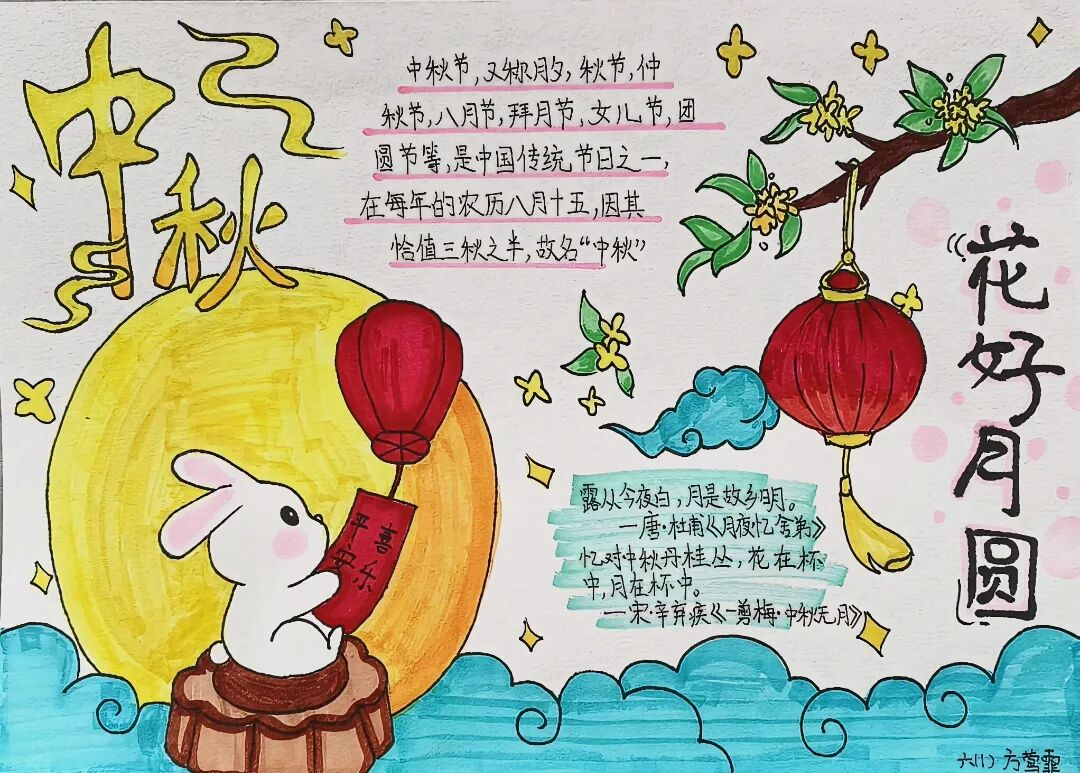 中秋
中秋节,又称月夕,秋节,仲
秋节,八月节,拜月节,女儿节,团
圆节等,是中国传统节日之一,
在每年的农历八月十五,因其
恰值三秋之半,故名“中秋”
花好月圆
平安
喜乐
露从今夜白,月是故乡明。
—唐·杜甫《月夜忆舍弟》
忆对中秋丹桂丛,花在杯
中,月在杯中。
—宋·辛弃疾《一剪梅·中秋无月》
六(1) 方莺霏